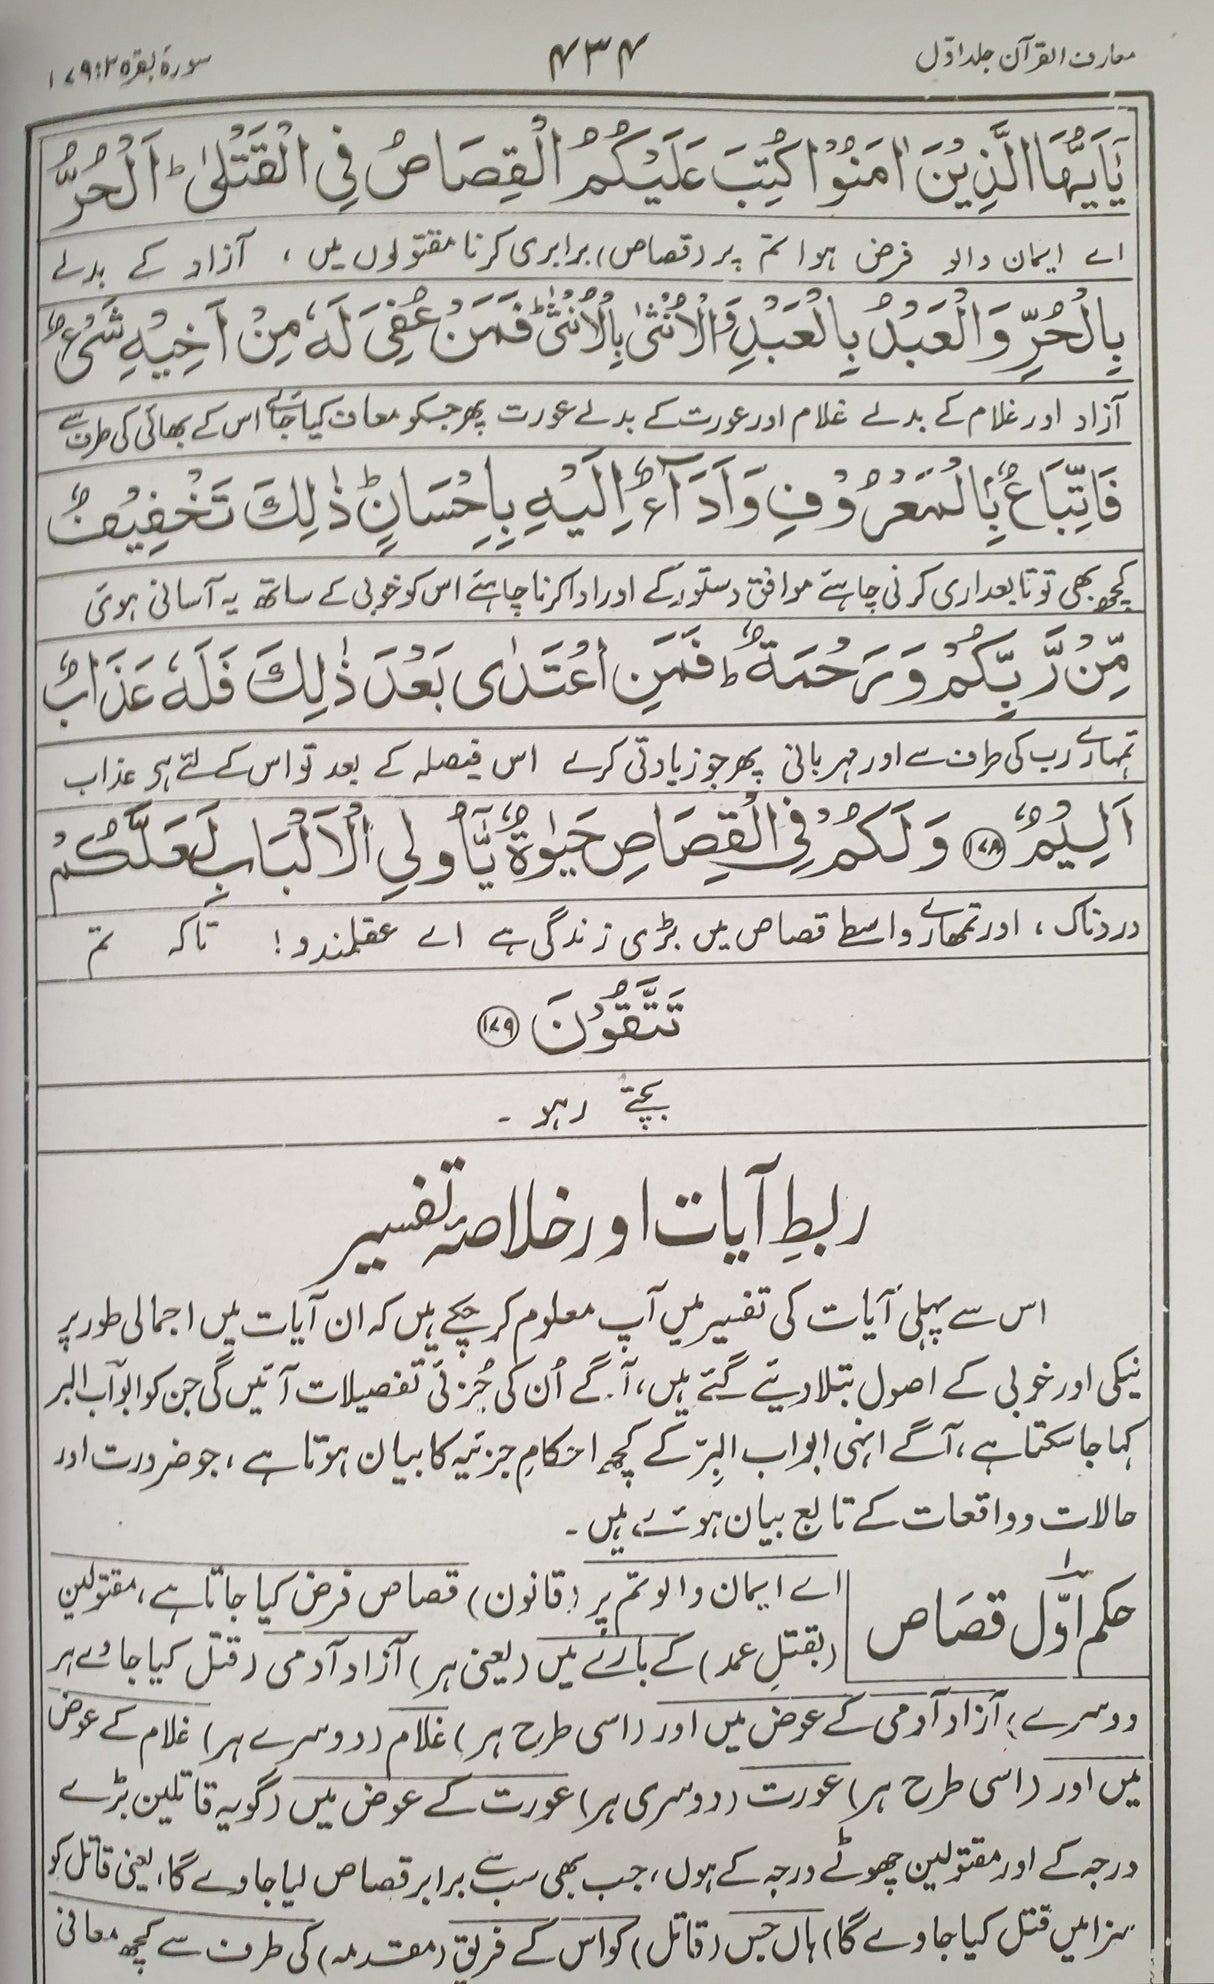 معارف القرآن جلد اوّل
۴۳۴
سورۂ بقرہ ۲:۱۷۹
يٰٓاَيُّهَا الَّذِيْنَ اٰمَنُوْا كُتِبَ عَلَيْكُمُ الْقِصَاصُ فِي الْقَتْلٰىؕ اَلْحُرُّ
اے ایمان والو فرض ہوا تم پر (قصاص) برابری کرنا مقتولوں میں ، آزاد کے بدلے
بِالْحُرِّ وَالْعَبْدُ بِالْعَبْدِ وَالْاُنْثٰى بِالْاُنْثٰىؕ فَمَنْ عُفِيَ لَهٗ مِنْ اَخِيْهِ شَيْءٌ
آزاد اور غلام کے بدلے غلام اور عورت کے بدلے عورت پھر جسکو معاف کیا جائے اس کے بھائی کی طرف سے
فَاتِّبَاعٌۢ بِالْمَعْرُوْفِ وَاَدَآءٌ اِلَيْهِ بِاِحْسَانٍؕ ذٰلِكَ تَخْفِيْفٌ
کچھ بھی تو تابعداری کرنی چاہئے موافق دستور کے اور ادا کرنا چاہئے اس کو خوبی کے ساتھ یہ آسانی ہوئی
مِّنْ رَّبِّكُمْ وَرَحْمَةٌؕ فَمَنِ اعْتَدٰى بَعْدَ ذٰلِكَ فَلَهٗ عَذَابٌ
تمہارے رب کی طرف سے اور مہربانی پھر جو زیادتی کرے اس فیصلہ کے بعد تو اس کے لئے ہی عذاب
اَلِيْمٌ ۱۷۸ وَلَكُمْ فِي الْقِصَاصِ حَيٰوةٌ يّٰٓاُولِي الْاَلْبَابِ لَعَلَّكُمْ
دردناک ، اور تمھارے واسطے قصاص میں بڑی زندگی ہے اے عقلمندو ! تاکہ تم
تَتَّقُوْنَ ۱۷۹
بچتے رہو ۔
ربطِ آیات اور خلاصۂ تفسیر
اس سے پہلی آیات کی تفسیر میں آپ معلوم کر چکے ہیں کہ ان آیات میں اجمالی طور پر
نیکی اور خوبی کے اصول بتلا دیئے گئے ہیں ، آگے اُن کی جُزئی تفصیلات آئیں گی جن کو ابوآب البر
کہا جا سکتا ہے ، آگے انہی ابواب البِرّ کے کچھ احکامِ جزئیہ کا بیان ہوتا ہے ، جو ضرورت اور
حالات و واقعات کے تابع بیان ہوئے ہیں ۔
حکم اوّل قصاص
اے ایمان والو تم پر (قانون) قصاص فرض کیا جاتا ہے ، مقتولین
(بقتلِ عمد) کے بارے میں (یعنی ہر) آزاد آدمی (قتل کیا جاوے ہر
دوسرے) آزاد آدمی کے عوض میں اور (اسی طرح ہر) غلام (دوسرے ہر) غلام کے عوض
میں اور (اسی طرح ہر) عورت (دوسری ہر) عورت کے عوض میں (گو یہ قاتلین بڑے
درجہ کے اور مقتولین چھوٹے درجہ کے ہوں ، جب بھی سب سے برابر قصاص لیا جاوے گا ، یعنی قاتل کو
سزا میں قتل کیا جاوے گا) ہاں جس (قاتل) کو اس کے فریق (مقدمہ) کی طرف سے کچھ معافی